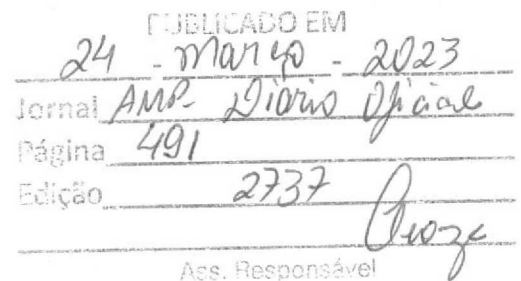 PUBLICADO EM
24 - Março - 2023
Jornal AMP - Diário Oficial
Página 491
Edição 2737
Ass. Responsável